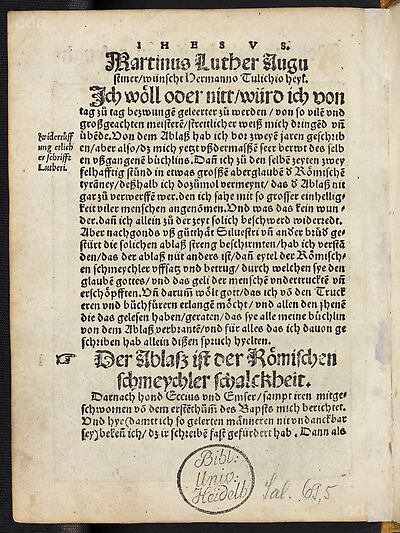 IHESVS.
Martinus Luther Augu
stiner/wünscht Hermanno Tulichio heyl.
Ich wöll oder nitt/würd ich von
tag zů tag bezwungẽ geleerter zů werden/von so vilẽ vnd
großgeachten meisterẽ/streitlicher weiß mich dringẽd vñ
übẽde. Von dem Ablaß hab ich vor zweyẽ jaren geschrib
en/aber also/dz mich yetzt vßdermassẽ seer berwt des selb
en vßgangenẽ büchlins. Dañ ich zů den selbẽ zeyten zwey
felhafftig stůnd in etwas grossẽ aberglaubẽ d' Römischẽ
tyraney/deßhalb ich dozůmol vermeynt/das d' Ablaß nit
gar zů verwerffẽ wer. den ich sahe mit so grosser einhellig
keit viler menschen angenõmen. Vnd was das kein wun
der. dañ ich allein zů der zyt solich beschwerd widerredt.
Aber nachgonds vß gütthät Siluestri vñ ander brüd' ge
stürt die solichen ablaß streng beschirmten/hab ich verstã
den/das der ablaß nüt anders ist/dañ eytel der Römisch
en schmeychler vffsatz vnd betrug/durch welchen sye den
glaubẽ gottes/vnd das gelt der menschẽ vndertrucktẽ vñ
erschöpfften. Vñ darum̃ wölt gott/das ich võ den Truck
eren vnd büchfürern erlangẽ möcht/vnd allen den jhenẽ
die das gelesen haben/geraten/das sye alle meine büchlin
von dem Ablaß verbrantẽ/vnd für alles das ich dauon ge
schriben hab allein dißen spruch hyelten.
widerrüff
ung etlich
er schrifft
Lutheri.
☞ Der Ablaß ist der Römischen
schmeychler schalckheit.
Darnach hond Eccius vnd Emser/sampt iren mitge
schwornen võ dem erstẽthům̃ des Bapsts mich berichtet.
Vnd hye (damit ich so gelerten männeren nit vndanckbar
sey) beken̄ ich/dz ir schreibẽ fast gefürdert hab. Dann als
Bibl:
Univ.
Heidelb.
Sal. 69,5